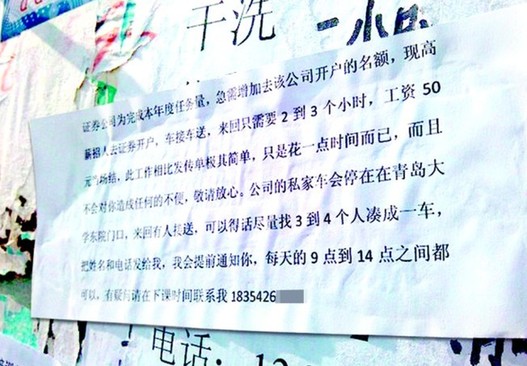 干洗
证券公司为完成本年度任务量，急需增加去该公司开户的名额，现高
薪招人去证券开户，车接车送，来回只需要 2 到 3 个小时，工资 50
元当场结，此工作相比发传单极其简单，只是花一点时间而已，而且
不会对你造成任何的不便，敬请放心。公司的私家车会停在在青岛大
学东院门口，来回有人接送，可以得话尽量找 3 到 4 个人凑成一车，
把姓名和电话发给我，我会提前通知你，每天的 9 点到 14 点之间都
可以，有疑问请在下课时间联系我 1835426
电话：